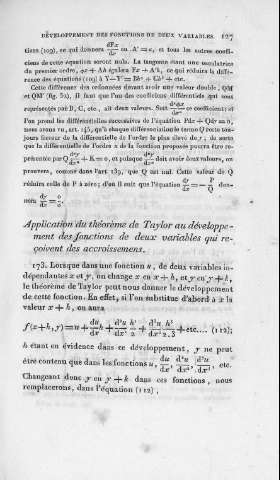 DÉVELOPPEMENT DES FONCTIONS DE DEUX VARIABLES. 127
tions (109), ce qui donnera dFx/dx ou A' = c, et tous les autres coeffi-
ciens de cette équation seront nuls. La tangente étant une sécantrice
du premier ordre, ax + A égalera Fx + A'h, ce qui réduira la diffé-
rence des équations (109) à Y—Y' = Bh² + Ch³ + etc.
Cette différence des ordonnées devant avoir une valeur double, QM
et QM' (fig. 52), il faut que l'un des coefficiens différentiels qui sont
représentés par B, C, etc., ait deux valeurs. Soit ce coefficient; si
l'on prend les différentielles successives de l'équation Pdx + Qdy = 0,
nous avons vu, art. 145, qu'à chaque différentiation le terme Q reste tou-
jours facteur de la différentielle de l'ordre le plus élevé de y, de sorte
que la différentielle de l'ordre n de la fonction proposée pourra être re-
présentée par Q + K = 0, et puisque doit avoir deux valeurs, on
prouvera, comme dans l'art 139, que Q est nul. Cette valeur de Q
réduira celle de P à zéro; d'où il suit que l'équation dy/dx = — P/Q don-
nera dy/dx = 0/0.
Application du théorème de Taylor au développe-
ment des fonctions de deux variables qui re-
çoivent des accroissemens.
173. Lorsque dans une fonction u, de deux variables in-
dépendantes x et y, on change x en x + h, et y en y + k,
le théorème de Taylor peut nous donner le développement
de cette fonction. En effet, si l'on substitue d'abord à x la
valeur x + h, on aura
f(x+h, y) = u + du/dx h + d²u/dx² h²/2 + d³u/dx³ h³/2.3 + etc.... (112);
h étant en évidence dans ce développement, y ne peut
être contenu que dans les fonctions u, du/dx, d²u/dx², d³u/dx³, etc.
Changeant donc y en y + k dans ces fonctions, nous
remplacerons, dans l'équation (112),